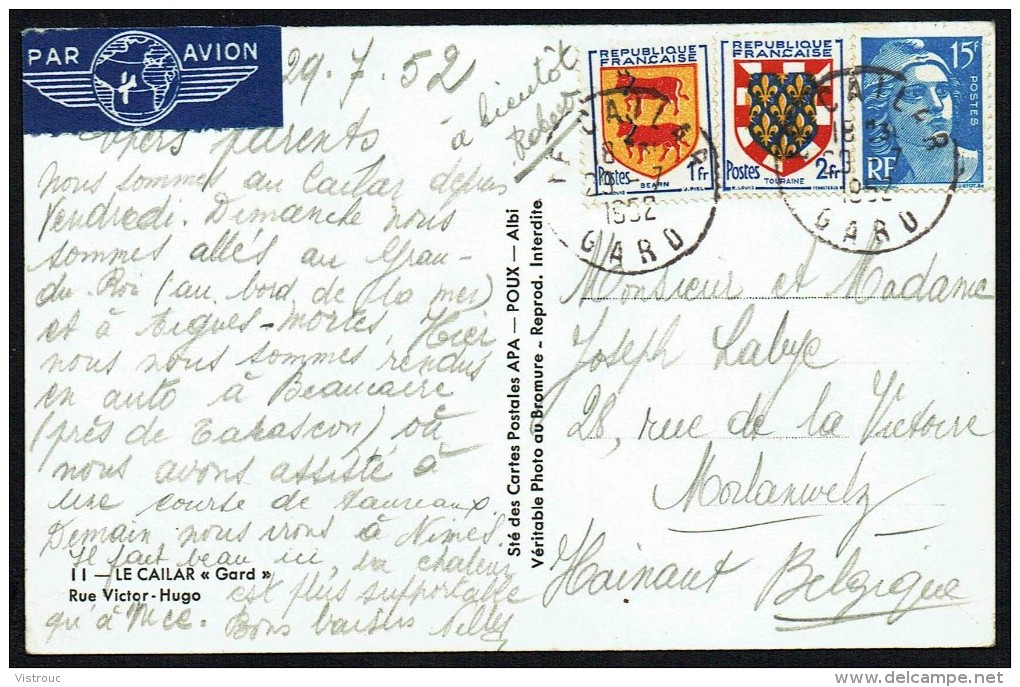 PAR AVION
29.7.52
à bientôt
Robert
chers parents
nous sommes au Cailar depuis
Vendredi. Dimanche nous
sommes allés au Grau-
du-Roi (au bord de la mer)
et à Aigues-mortes. Hier
nous nous sommes rendus
en auto à Beaucaire
(près de Tarascon) où
nous avons assisté à
une course de taureaux.
Demain nous irons à Nîmes.
Il fait beau ici, la chaleur
est plus supportable
qu'à Nice. Bons baisers
11 — LE CAILAR « Gard »
Rue Victor-Hugo
Sté des Cartes Postales APA — POUX — Albi
Véritable Photo au Bromure - Reprod. Interdite
REPUBLIQUE
FRANÇAISE
Postes 1Fr
BEARN
REPUBLIQUE
FRANÇAISE
Postes 2Fr
TOURAINE
15F
POSTES
RF
LE CAILAR
1952
GARD
CAILAR
1952
GARD
Monsieur et Madame
Joseph Labye
28, rue de la Victoire
Morlanwelz
Hainaut Belgique
Vistrouc
delcampe.net